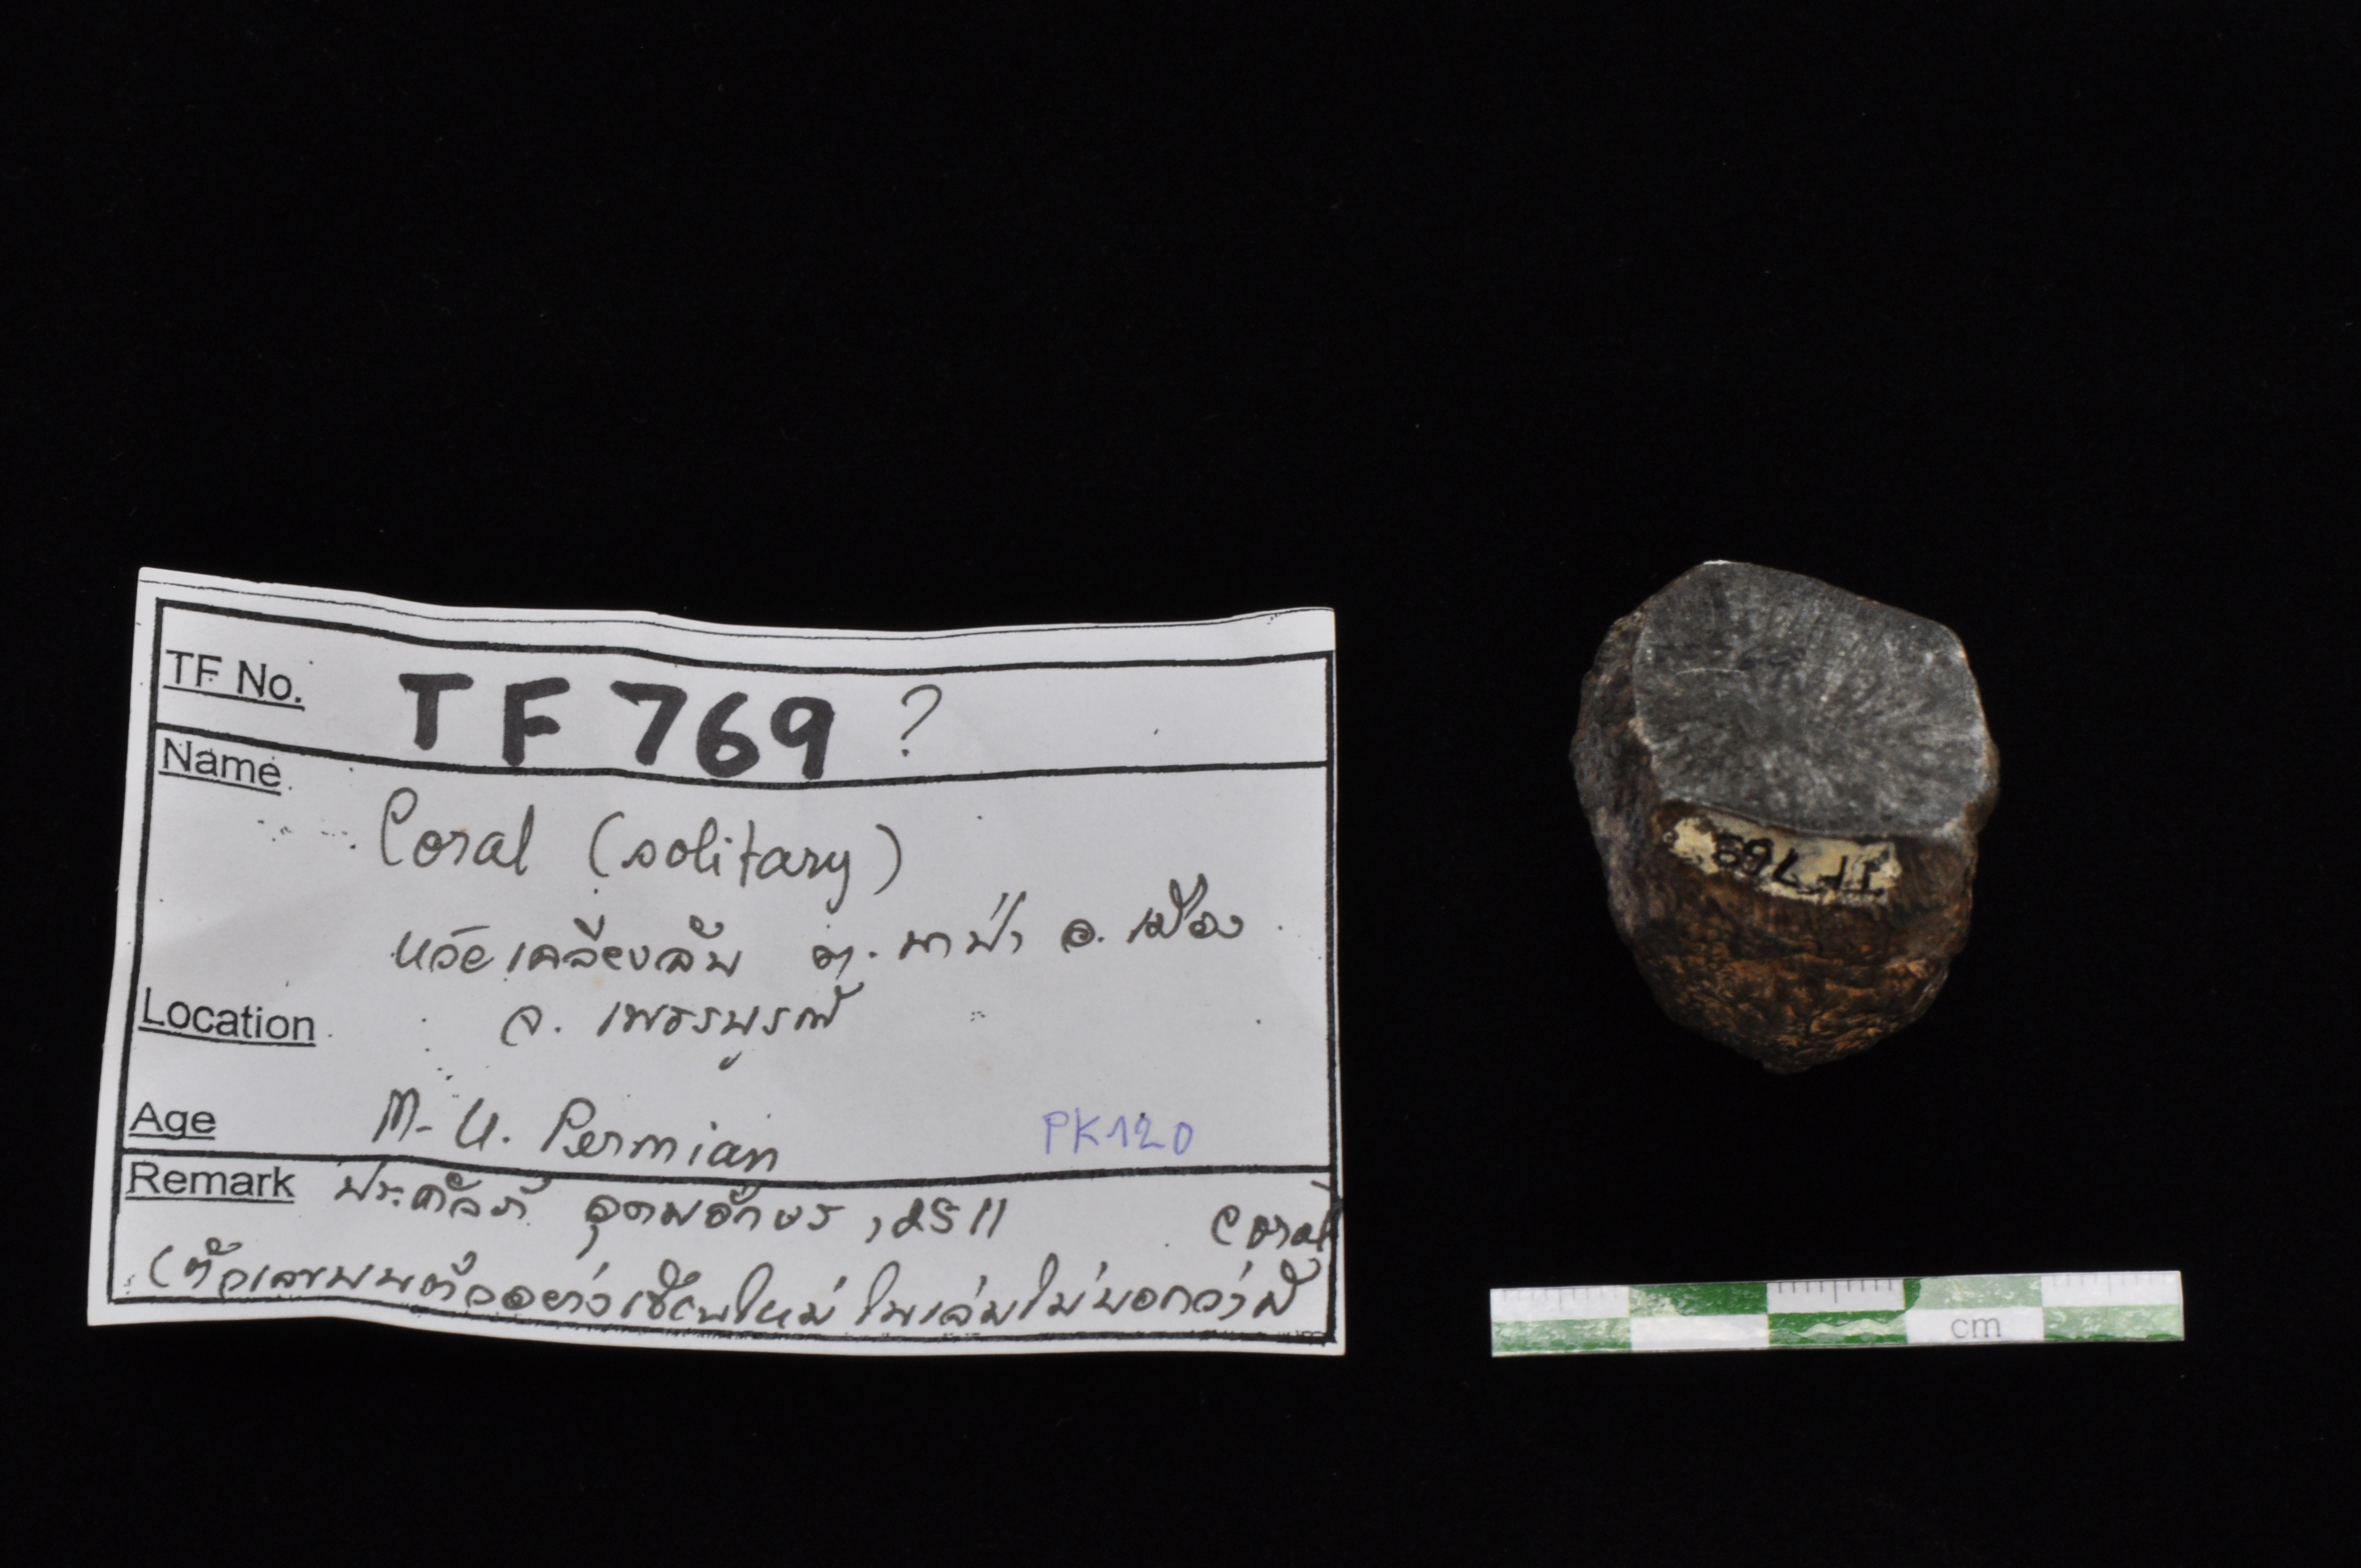 TF No. TF 769 ?
Name
Coral (solitary)
ห้วยเคลียงลับ ต. นาป่า อ. เมือง
Location จ. เพชรบูรณ์
Age M-U. Permian PK120
Remark ประคัลภ์ อุดมอักษร, 2511 Coral
(ตัวเลขบนตัวอย่างเขียนใหม่ ในเล่มไม่บอกว่ามี
TF 769
cm